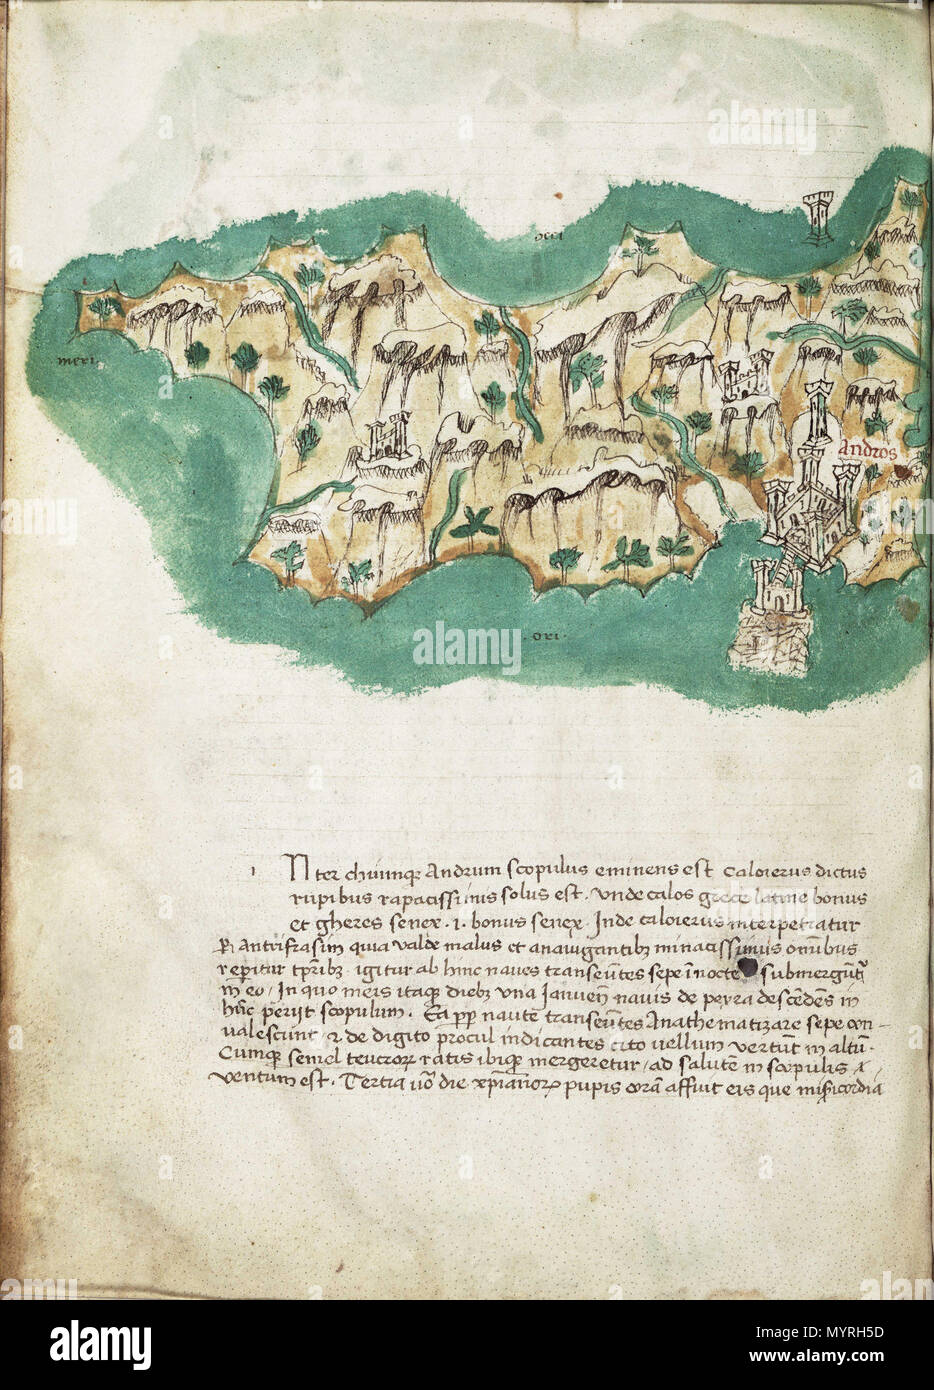 occi
meri
Andros
ori
I Nter chiūmqꝫ Andrum scopulus eminens est Caloierus dictus
rupibus rapacissimis solus est. Unde calos grece latine bonus
et gheres senex .i. bonus senex. Inde caloierus interpretratur
Antifrasim quia valde malus et anavigantibꝫ minacissimus omībus
reperitur tpribꝫ igitur ab hinc naves transeūtes sepe ī nocte submergūt
in eo, In quo meis itaqꝫ diebꝫ una Januēn navis de peyra descēdēs in
hūc perijt scopulum. Ea naute transeūtes Anathematizare sepe con-
valescunt & de digito procul indicantes cito vellum vertūt in altū.
Cumqꝫ semel teucrorꝫ ratis ibiqꝫ mergeretur, ad salutē in scopulis a
ventum est. Tertia vō die xpianorꝫ pupis corā affuit eis que misericordiā
alamy
alamy
Image ID: MYRH5D
www.alamy.com